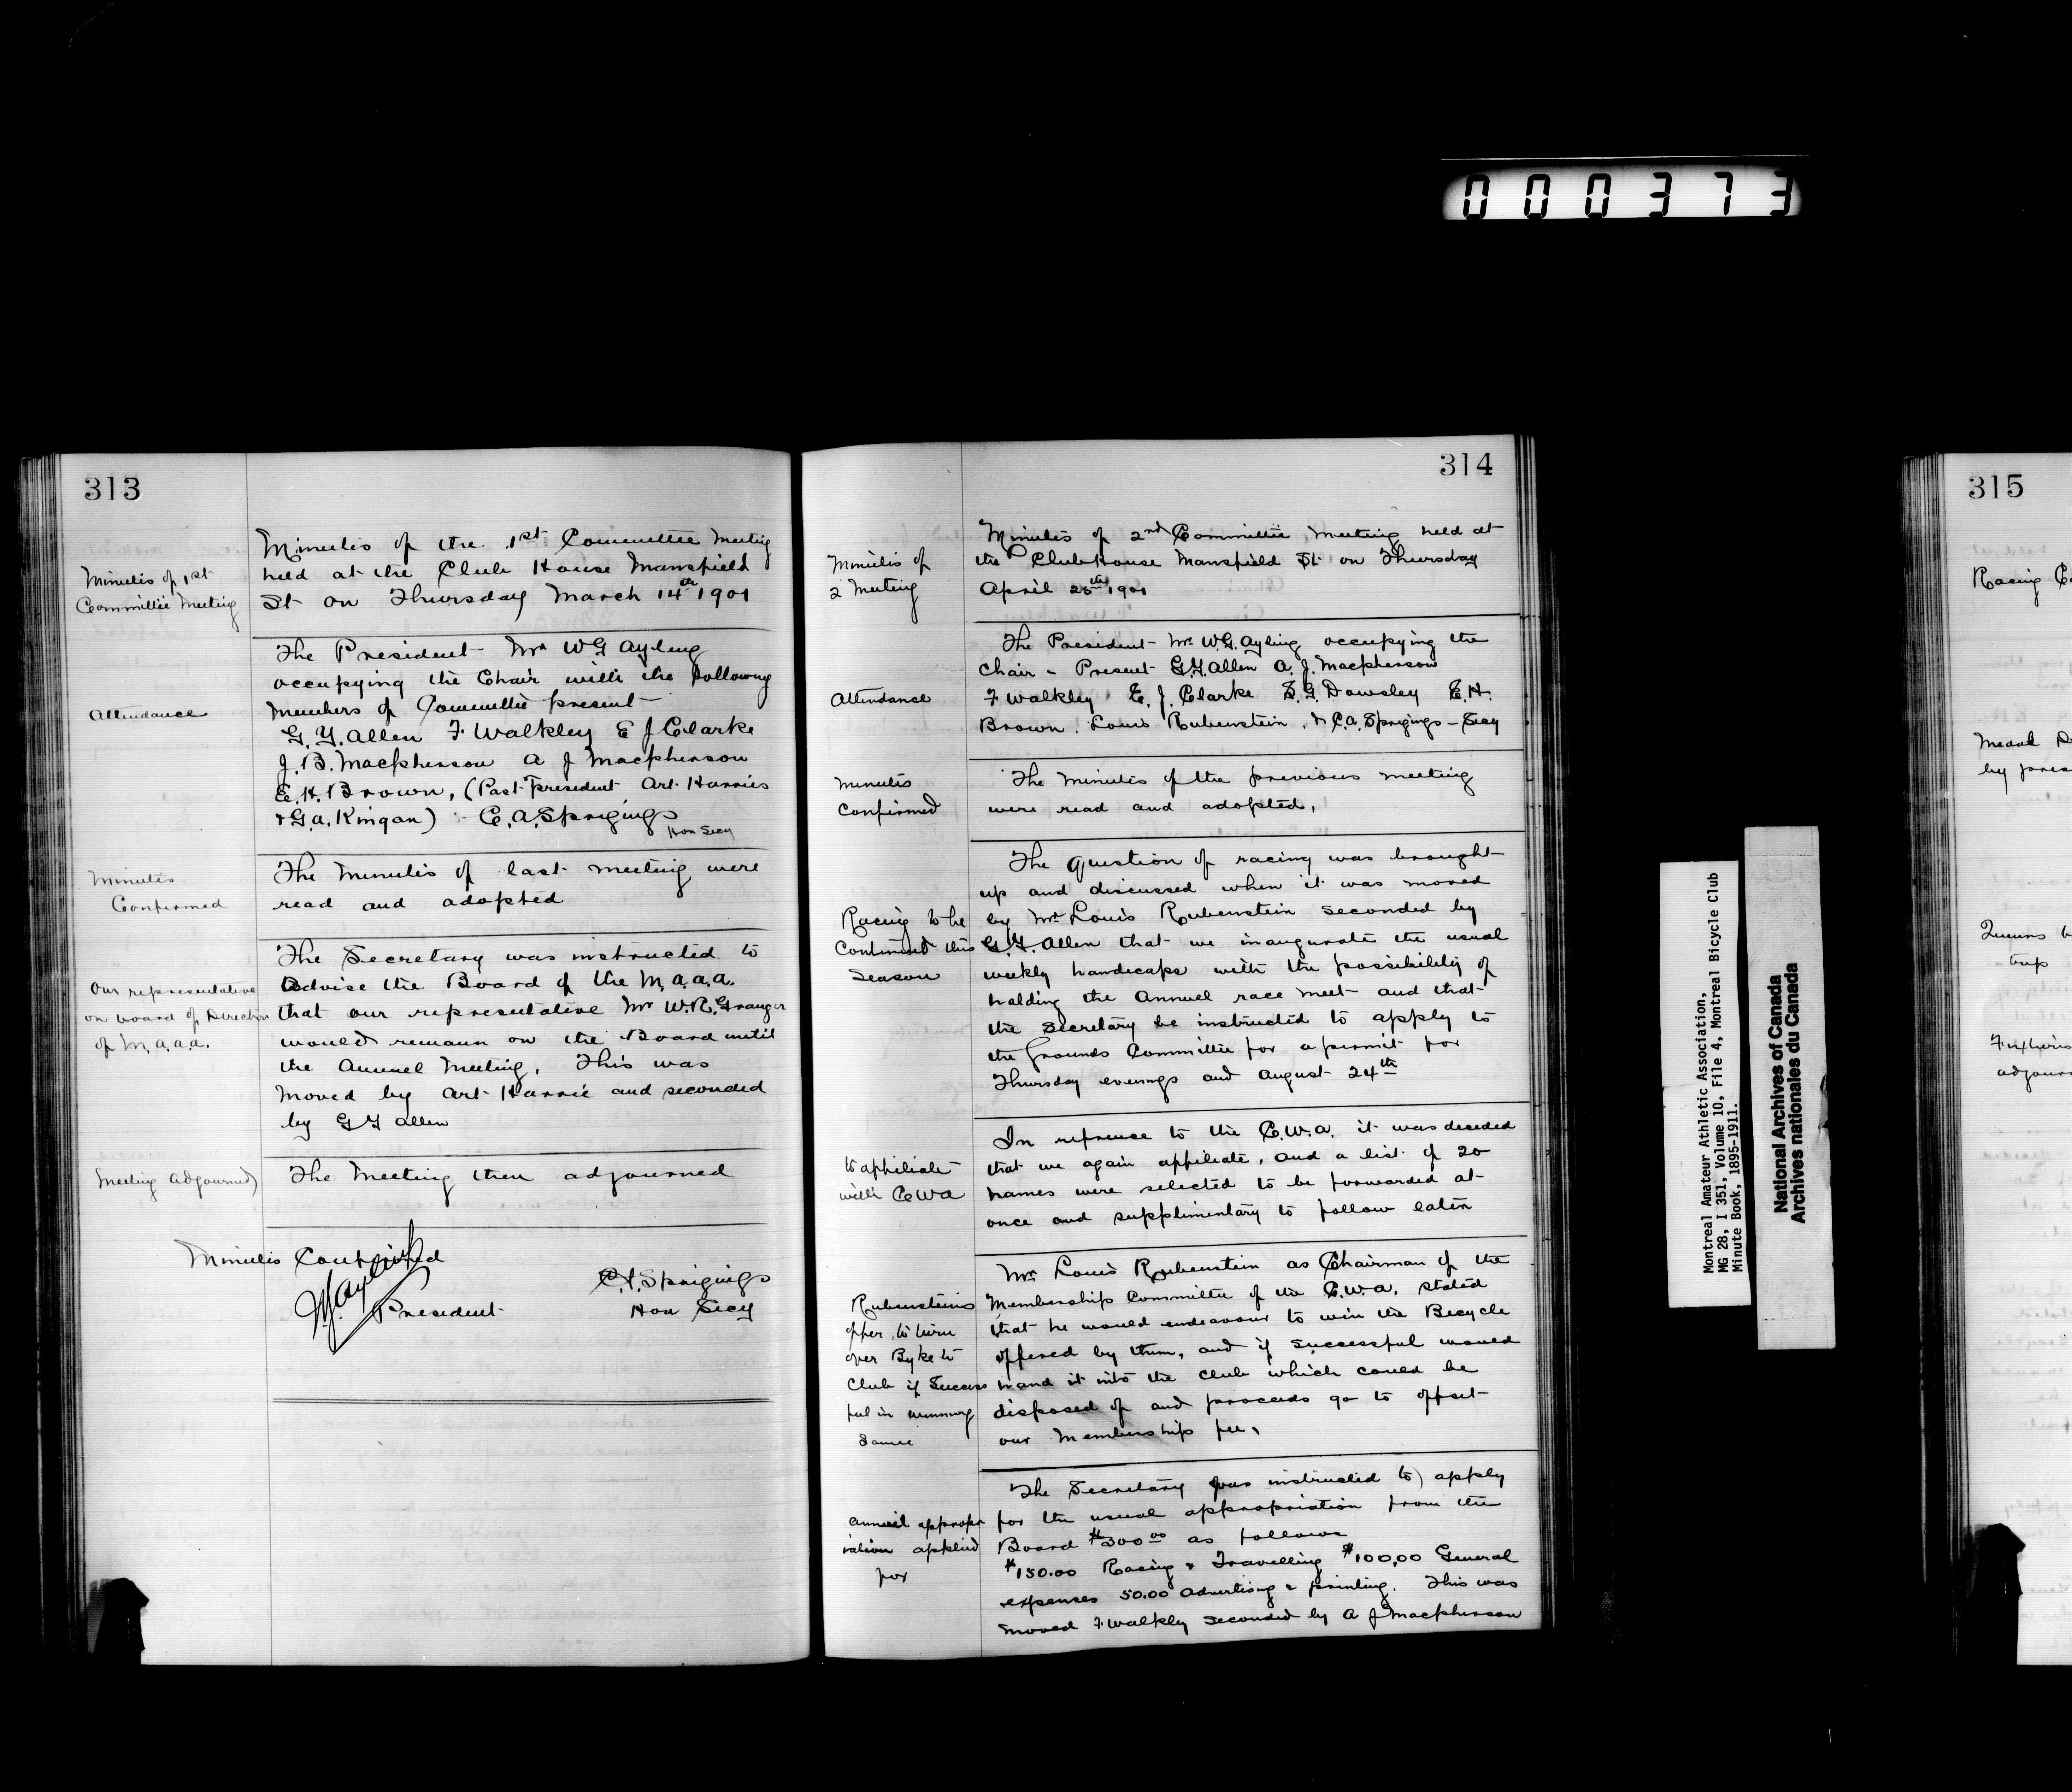 000373
313
Minutes of 1st
Committee Meeting
Minutes of the 1st Committee Meeting
held at the Club House Mansfield
St on Thursday March 14th 1901
Attendance
The President Mr W G Ayling
occupying the Chair with the following
members of Committee present
G. Y. Allen F Walkley E J Clarke
J. B. Macpherson A J Macpherson
E. H. Brown, (Past President Art Harries
& G. A. Kingan) - C. A. Sprigings
Hon Secy
Minutes
Confirmed
The Minutes of last meeting were
read and adopted
Our representative
on board of Directors
of M.A.A.A.
The Secretary was instructed to
advise the Board of the M.A.A.A.
that our represetative Mr W. R. Granger
would remain on the Board until
the Annuel Meeting. This was
moved by Art Harrie and seconded
by G Y Allen
Meeting Adjourned
The Meeting then adjourned
Minutes Confirmed
W.G. Ayling
President
C. A. Sprigings
Hon Secy
314
Minutes of
2 Meeting
Minutes of 2nd Committee Meeting held at
the Club House Mansfield St on Thursday
April 25th 1901
Attendance
The President Mr W. G. Ayling occupying the
Chair - Present G. Y. Allen A. J. Macpherson
F Walkley E. J. Clarke S. G. Dowsley E. H.
Brown. Louis Rubenstein, & C. A. Sprigings - Secy
Minutes
Confirmed
The Minutes of the previous meeting
were read and adopted,
Racing to be
Continued this
Season
The question of racing was brought
up and discussed when it was moved
by Mr Louis Rubenstein seconded by
G. Y. Allen that we inaugurate the usual
weekly handicaps with the possibility of
holding the Annuel race meet and that
the Secretary be instructed to apply to
the Grounds Committee for a permit for
Thursday evenings and August 24th
to affiliate
with C W A
In refrence to the C.W.A. it was decided
that we again affiliate, and a list of 20
names were selected to be forwarded at
once and supplimentary to follow later
Rubensteins
offer to turn
over Byke to
Club if Success
ful in winning
same
Mr Louis Rubenstein as Chairman of the
Membership Committee of the C.W.A. stated
that he would endeavour to win the Becycle
offered by them, and if successful would
hand it into the club which could be
disposed of and proceeds go to offset
our Membership fee,
Annuel approp
riation applied
for
The Secretary was instructed to apply
for the usual appropriation from the
Board $300.00 as follows
$150.00 Racing & Travelling $100.00 General
expenses 50.00 Advertising & printing. This was
moved F Walkley seconded by A J Macpherson
Montreal Amateur Athletic Association,
MG 28, I 351, Volume 10, File 4, Montreal Bicycle Club
Minute Book, 1895-1911.
National Archives of Canada
Archives nationales du Canada
315
Racing
Medal
by
trip